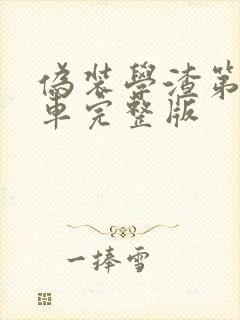 偽裝學渣第
車完整版
一捧雪